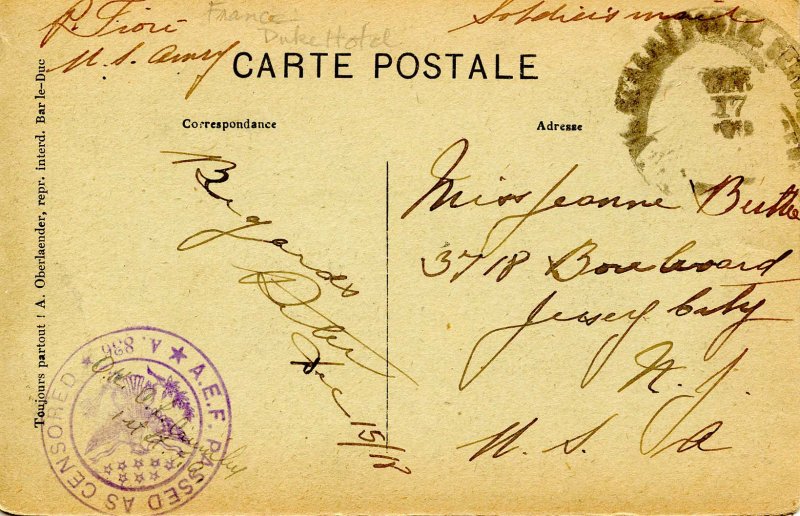 P. Fiore
U.S. Army
France
Duke Hotel
Soldier's mail
CARTE POSTALE
Correspondance
Adresse
17
Regards
Peter
Dec 15/18
Miss Jeanne
3718 Boulevard
Jersey City
N. J.
U. S. A
Toujours partout ! A. Oberlaender, repr. interd. Bar le-Duc
A.E.F. PASSED AS CENSORED
A. 836
O.K.
1st Lt.